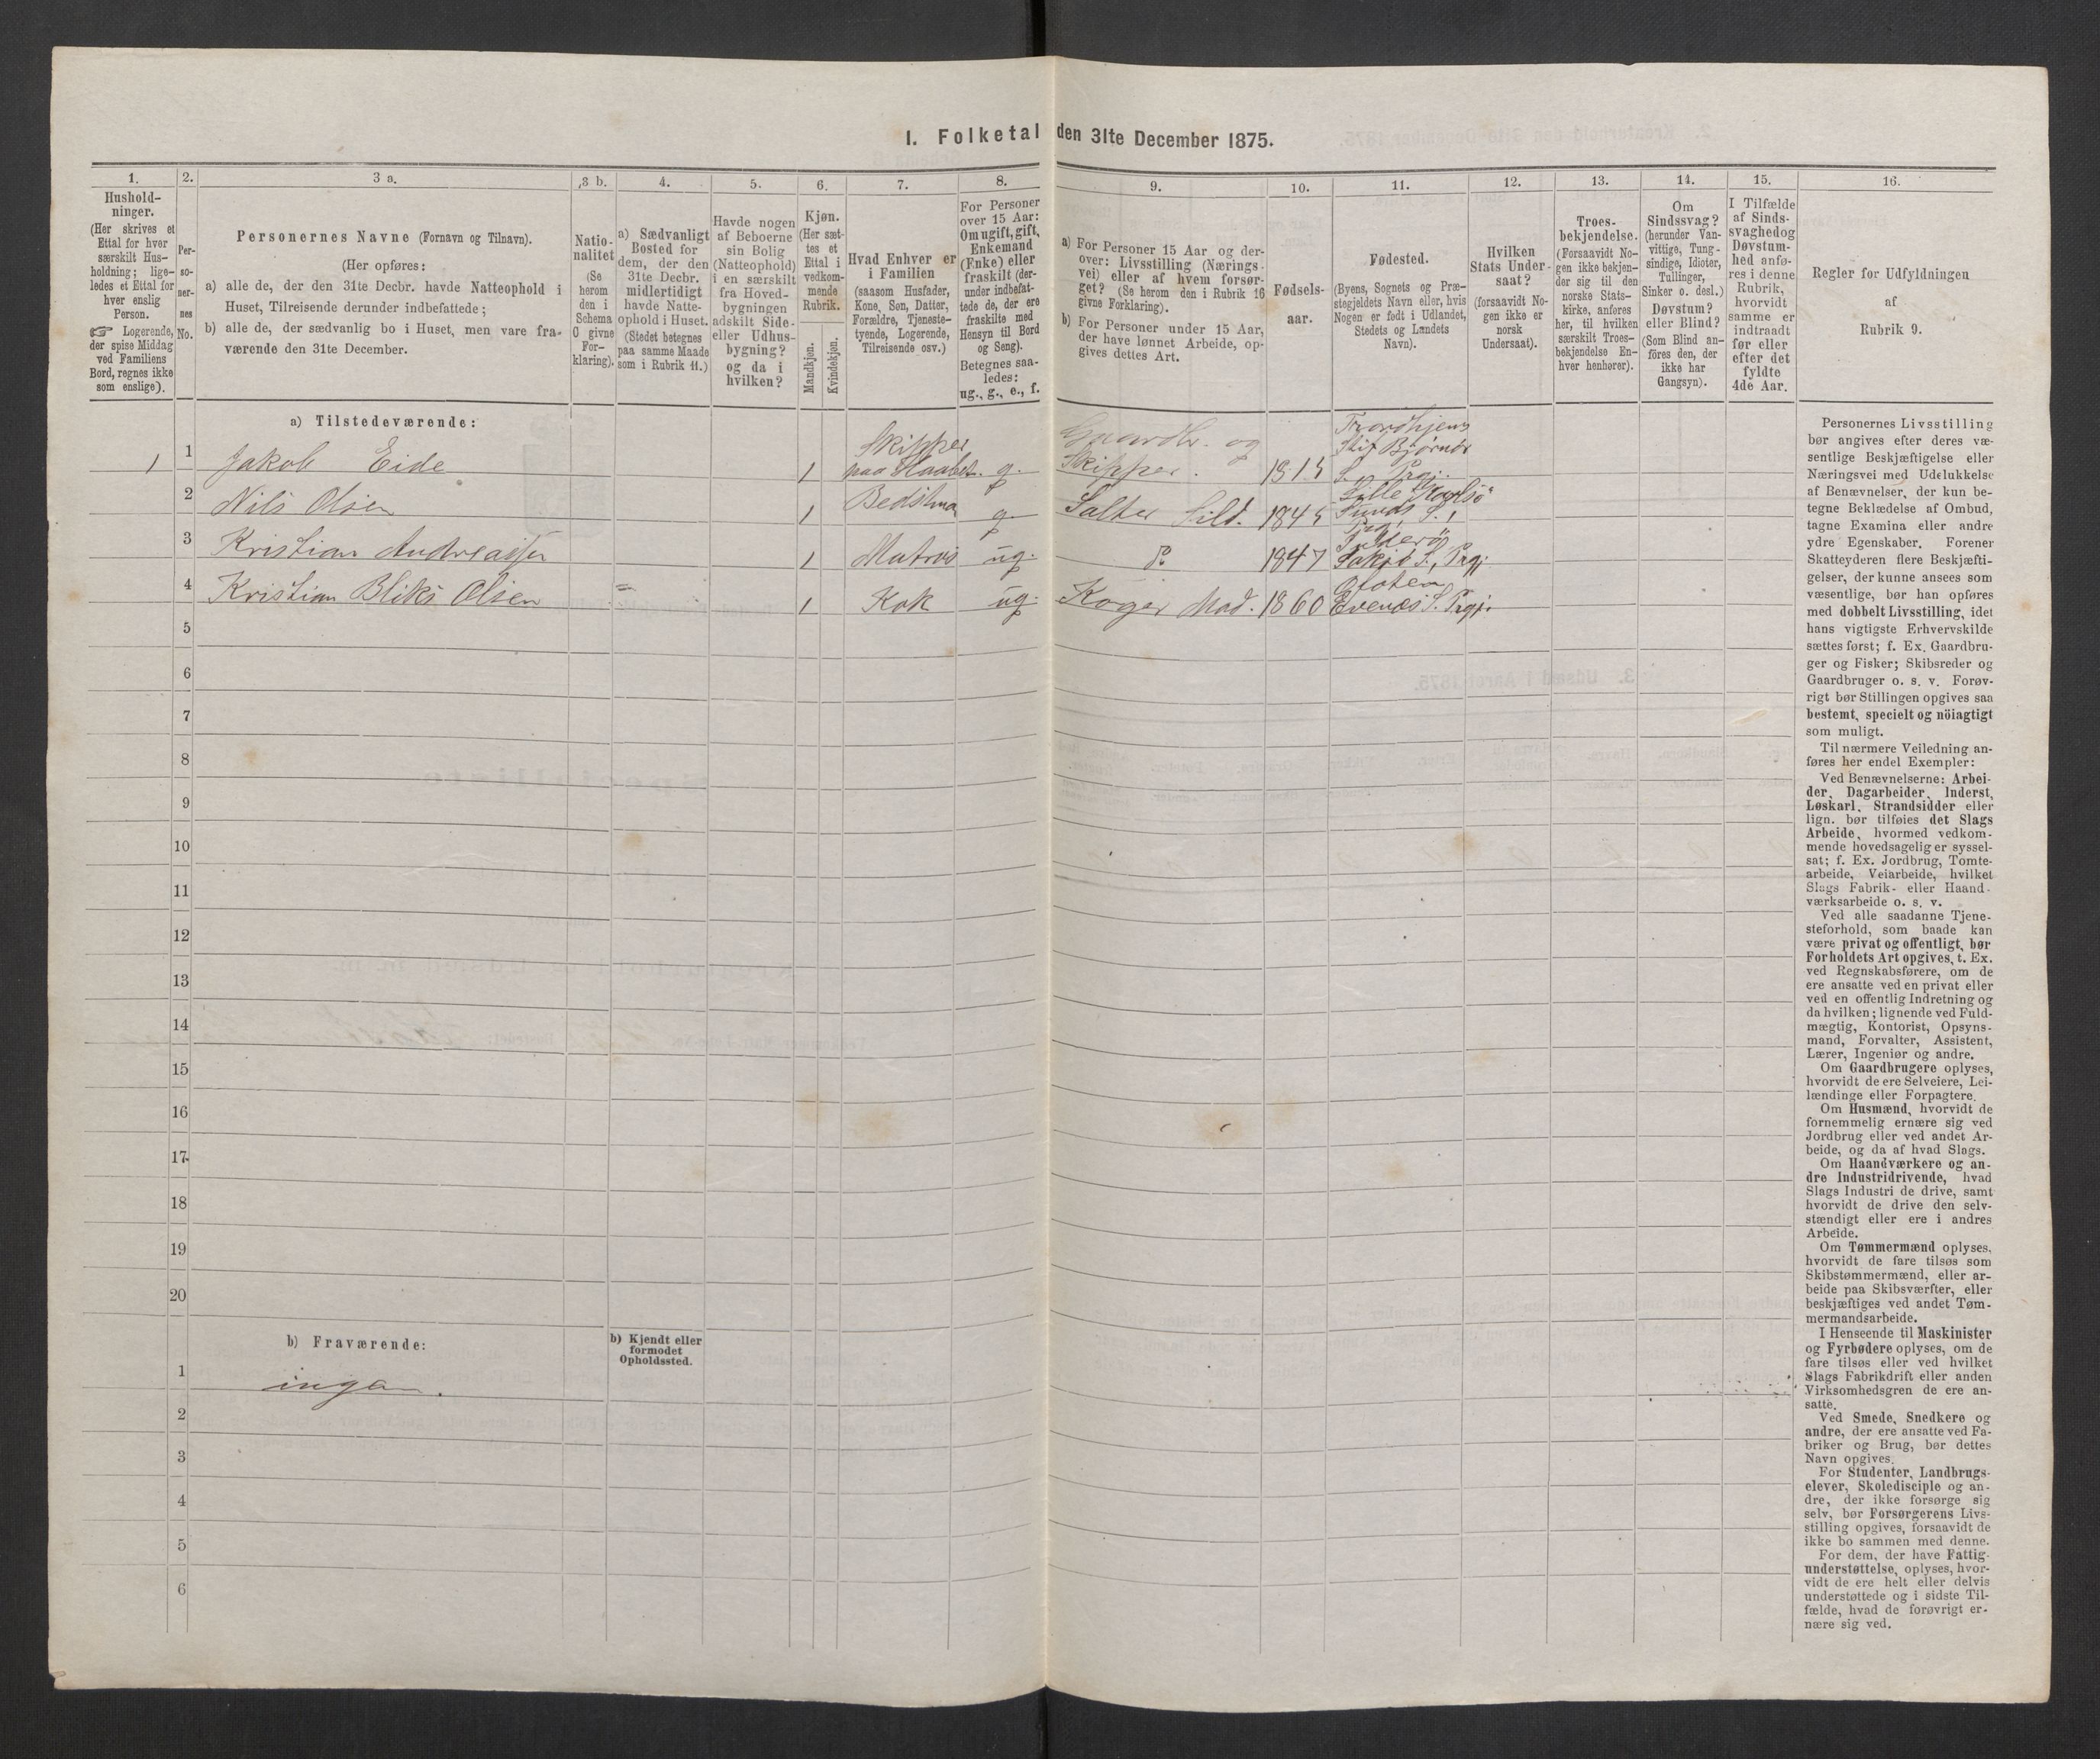 I. Folketal den 31te December 1875.
1.
Hushold-
ninger.
(Her skrives et
Ettal for hver
særskilt Hus-
holdning; lige-
ledes et Ettal for
hver enslig
Person.
☞ Logerende,
der spise Middag
ved Familiens
Bord, regnes ikke
som enslige).
2.
Per-
so-
ner-
nes
No.
3 a.
Personernes Navne (Fornavn og Tilnavn).
(Her opføres:
a) alle de, der den 31te Decbr. havde Natteophold i
Huset, Tilreisende derunder indbefattede;
b) alle de, der sædvanlig bo i Huset, men vare fra-
værende den 31te December.
3 b.
Natio-
nalitet
(Se
herom
den i
Schema
O givne
For-
klaring).
4.
a) Sædvanligt
Bosted for
dem, der den
31te Decbr.
midlertidigt
havde Natte-
ophold i Huset.
(Stedet betegnes
paa samme Maade
som i Rubrik 11.)
5.
Havde nogen
af Beboerne
sin Bolig
(Natteophold)
i en særskilt
fra Hoved-
bygningen
adskilt Side-
eller Udhus-
bygning?
og da i
hvilken?
6.
Kjøn.
(Her sæt-
tes et
Ettal i
vedkom-
mende
Rubrik.
Mandkjøn.
Kvindekjøn.
7.
Hvad Enhver er
i Familien
(saasom Husfader,
Kone, Søn, Datter,
Forældre, Tjeneste-
tyende, Logerende,
Tilreisende osv.)
8.
For Personer
over 15 Aar:
Om ugift, gift,
Enkemand
(Enke) eller
fraskilt (der-
under indbefat-
tede de, der ere
fraskilte med
Hensyn til Bord
og Seng).
Betegnes saa-
ledes:
ug., g., e., f.
9.
a) For Personer 15 Aar og der-
over: Livsstilling (Nærings-
vei) eller af hvem forsør-
get? (Se herom den i Rubrik 16
givne Forklaring).
b) For Personer under 15 Aar,
der have lønnet Arbeide, op-
gives dettes Art.
10.
Fødsels-
aar.
11.
Fødested.
(Byens, Sognets og Præ-
stegjeldets Navn eller, hvis
Nogen er født i Udlandet,
Stedets og Landets
Navn).
12.
Hvilken
Stats Under-
saat?
(forsaavidt No-
gen ikke er
norsk
Undersaat).
13.
Troes-
bekjendelse.
(Forsaavidt No-
gen ikke bekjen-
der sig til den
norske Stats-
kirke, anføres
her, til hvilken
særskilt Troes-
bekjendelse En-
hver henhører).
14.
Om
Sindssvag?
(herunder Van-
vittige, Tung-
sindige, Idioter,
Tullinger,
Sinker o. desl.)
Døvstum?
eller Blind?
(Som Blind an-
føres den, der
ikke har
Gangsyn).
15.
I Tilfælde
af Sinds-
svaghed og
Døvstum-
hed anfø-
res i denne
Rubrik,
hvorvidt
samme er
indtraadt
før eller
efter det
fyldte
4de Aar.
16.
Regler for Udfyldningen
af
Rubrik 9.
a) Tilstedeværende:
1 1 Jakob Eide 1 Skipper paa Haabet. g. Gaardbr. og Skipper. 1815 Trondhjems Stift Bjørnør S. Prgj.
2 Nils Olsen 1 Bedstma g. Salter Sild. 1845 Sunds S.,
3 Kristian Andreassen 1 Matros ug. 1847 S., Prgj
4 Kristian Bliks Olsen = 1 Kok ug. Koger Mad. 1860 Ofoten Evenæs S. Prgj.
5
6
7
8
9
10
11
12
13
14
15
16
17
18
19
20
b) Fraværende:
b) Kjendt eller
formodet
Opholdssted.
1 ingen.
2
3
4
5
6
Personernes Livsstilling
bør angives efter deres væ-
sentlige Beskjæftigelse eller
Næringsvei med Udelukkelse
af Benævnelser, der kun be-
tegne Beklædelse af Ombud,
tagne Examina eller andre
ydre Egenskaber. Forener
Skatteyderen flere Beskjæfti-
gelser, der kunne ansees som
væsentlige, bør han opføres
med dobbelt Livsstilling, idet
hans vigtigste Erhvervskilde
sættes først; f. Ex. Gaardbru-
ger og Fisker; Skibsreder og
Gaardbruger o. s. v. Forøv-
rigt bør Stillingen opgives saa
bestemt, specielt og nöiagtigt
som muligt.
Til nærmere Veiledning an-
føres her endel Exempler:
Ved Benævnelserne: Arbei-
der, Dagarbeider, Inderst,
Løskarl, Strandsidder eller
lign. bør tilføies det Slags
Arbeide, hvormed vedkom-
mende hovedsagelig er syssel-
sat; f. Ex. Jordbrug, Tomte-
arbeide, Veiarbeide, hvilket
Slags Fabrik- eller Haand-
værksarbeide o. s. v.
Ved alle saadanne Tjene-
steforhold, som baade kan
være privat og offentligt, bør
Forholdets Art opgives, t. Ex.
ved Regnskabsførere, om de
ere ansatte ved en privat eller
ved en offentlig Indretning og
da hvilken; lignende ved Fuld-
mægtig, Kontorist, Opsyns-
mand, Forvalter, Assistent,
Lærer, Ingeniør og andre.
Om Gaardbrugere oplyses,
hvorvidt de ere Selveiere, Lei-
lændinge eller Forpagtere.
Om Husmænd, hvorvidt de
fornemmelig ernære sig ved
Jordbrug eller ved andet Ar-
beide, og da af hvad Slags.
Om Haandværkere og an-
dre Industridrivende, hvad
Slags Industri de drive, samt
hvorvidt de drive den selv-
stændigt eller ere i andres
Arbeide.
Om Tømmermænd oplyses,
hvorvidt de fare tilsøs som
Skibstømmermænd, eller ar-
beide paa Skibsværfter, eller
beskjæftiges ved andet Tøm-
mermandsarbeide.
I Henseende til Maskinister
og Fyrbødere oplyses, om de
fare tilsøs eller ved hvilket
Slags Fabrikdrift eller anden
Virksomhedsgren de ere an-
satte.
Ved Smede, Snedkere og
andre, der ere ansatte ved Fa-
briker og Brug, bør dettes
Navn opgives.
For Studenter, Landbrugs-
elever, Skoledisciple og an-
dre, der ikke forsørge sig
selv, bør Forsørgerens Livs-
stilling opgives, forsaavidt de
ikke bo sammen med denne.
For dem, der have Fattig-
understøttelse, oplyses, hvor-
vidt de ere helt eller delvis
understøttede og i sidste Til-
fælde, hvad de forøvrigt er-
nære sig ved.